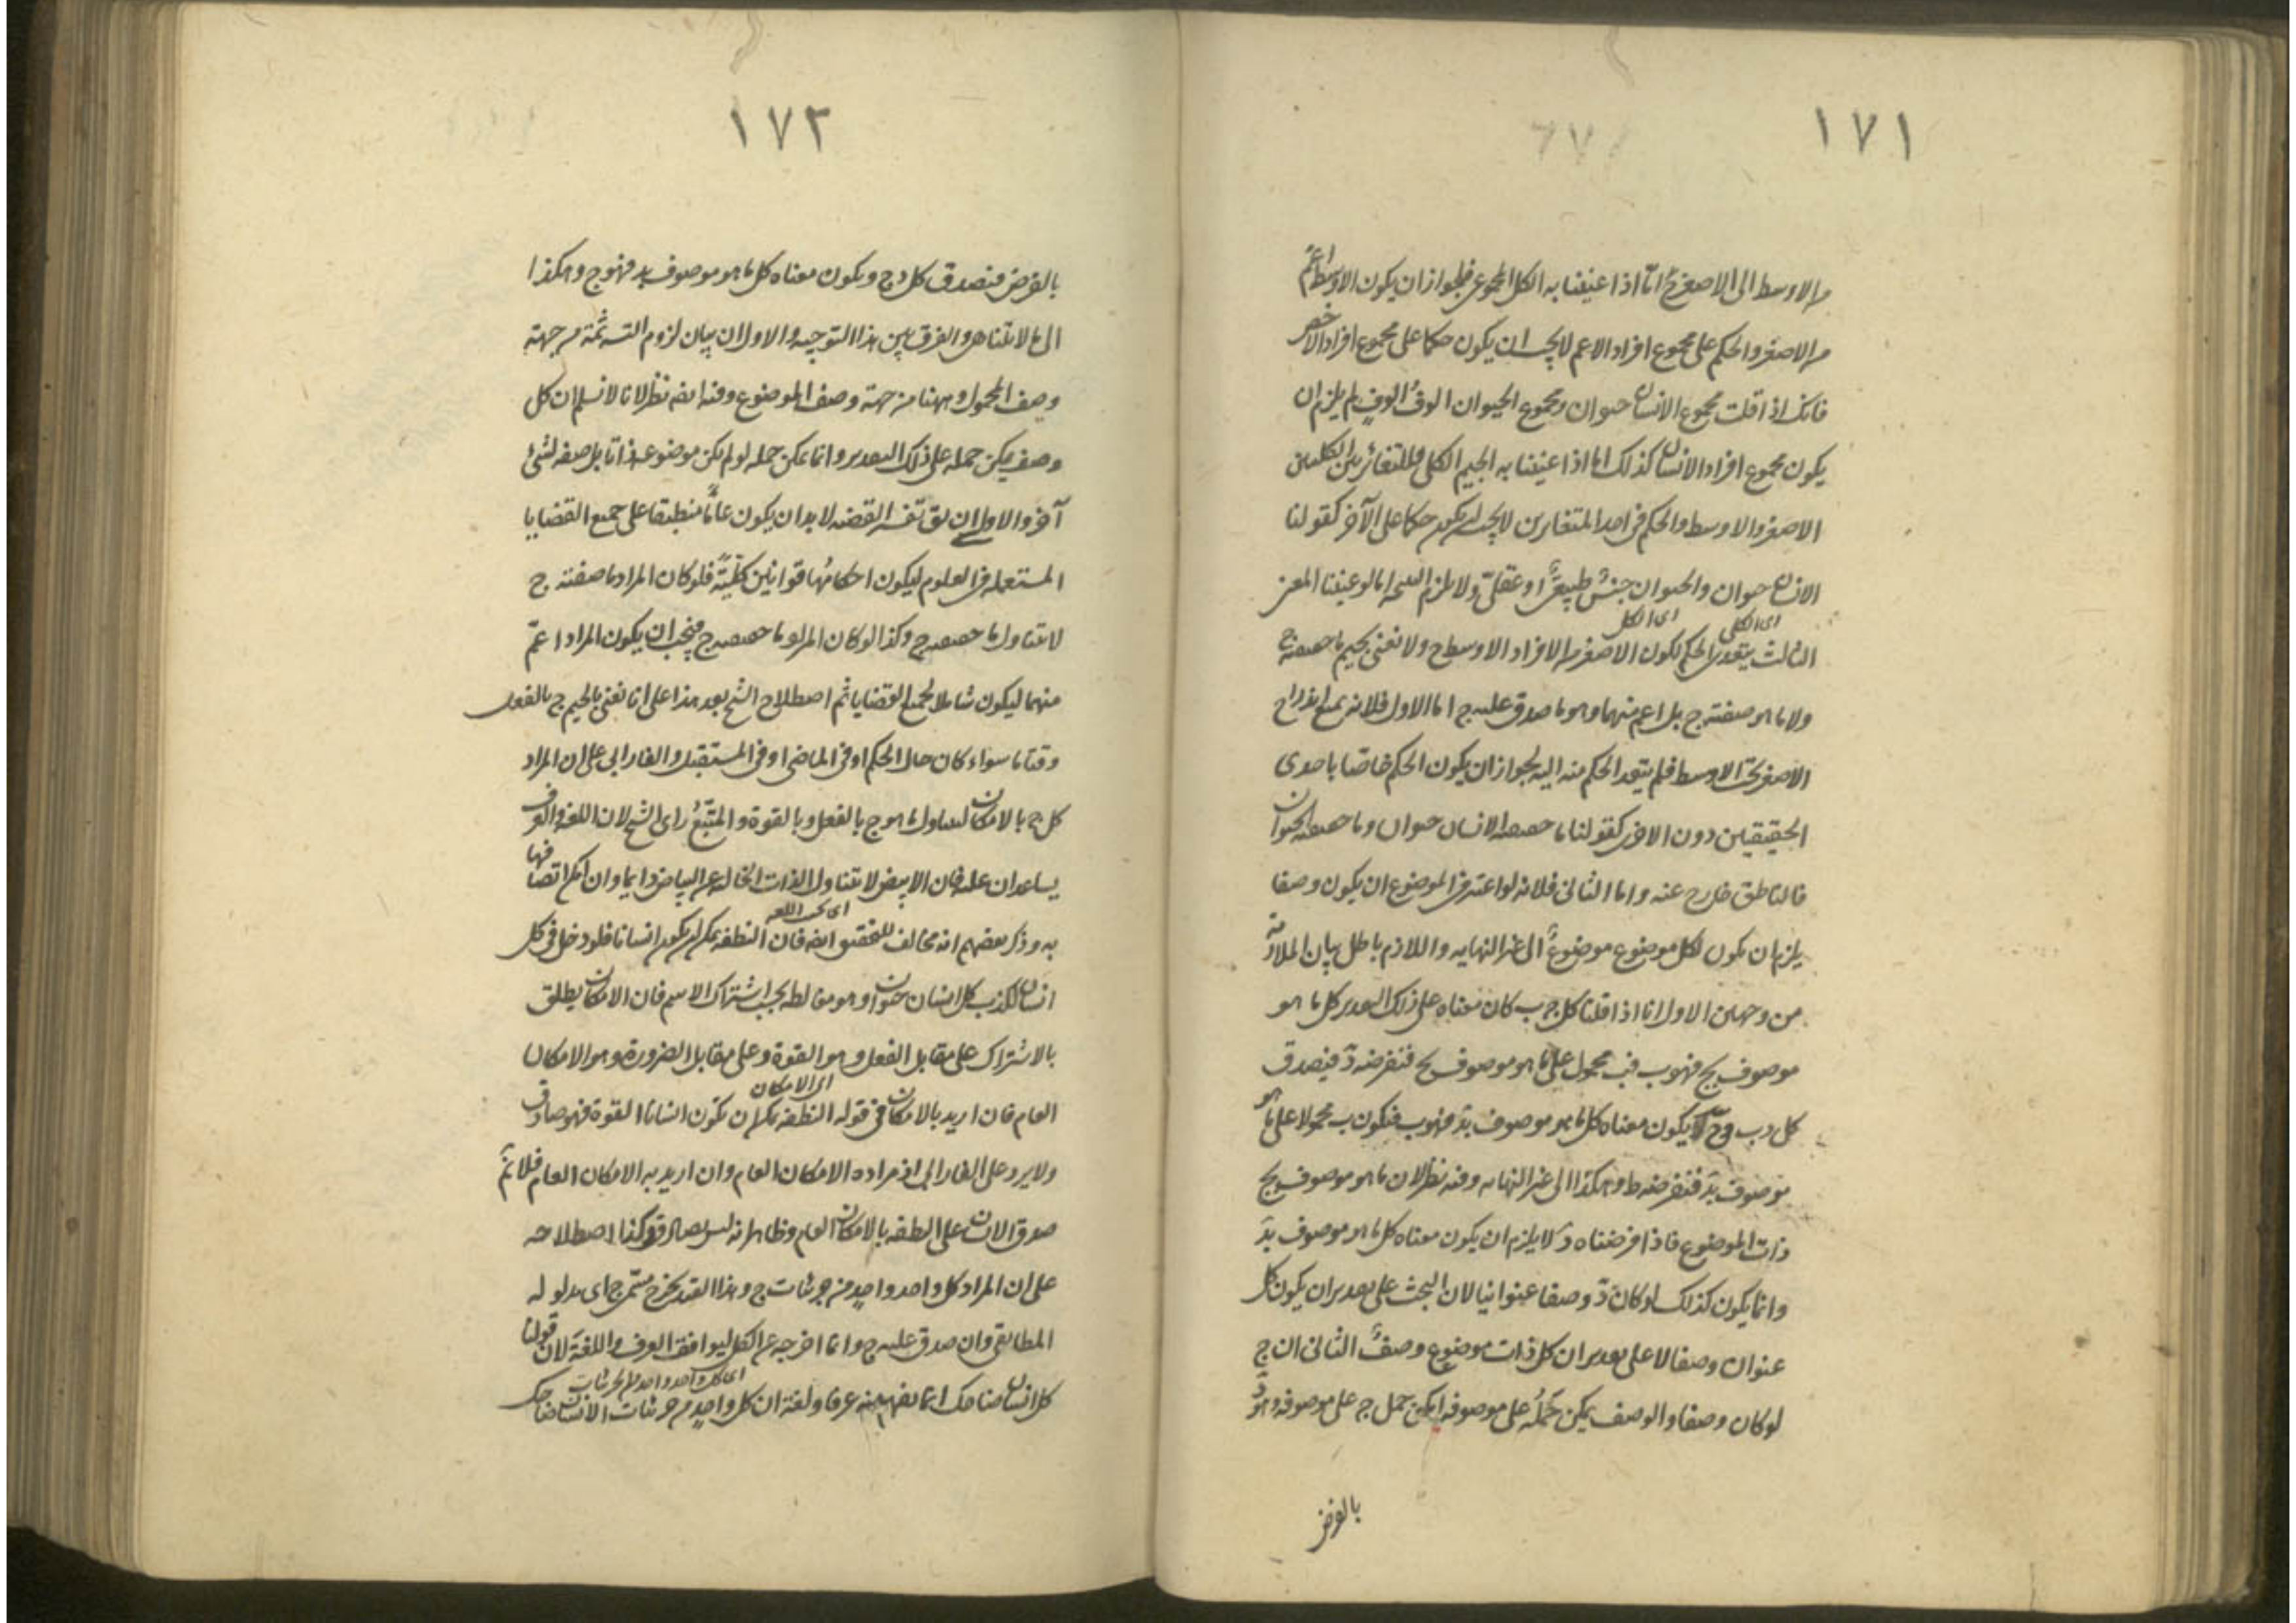 ١٧١
من الاوسط الى الاصغر ح اما اذا عنينا به الكل المجموعى فلجواز ان يكون الاوسط اعم
من الاصغر والحكم على مجموع افراد الاعم لا يجب ان يكون حكما على مجموع افراد الاخص
فانك اذا قلت مجموع الانسان حيوان ومجموع الحيوان الوف الوف لم يلزم ان
يكون مجموع افراد الانسان كذلك اما اذا عنينا به الجيم الكلى فللتغاير بين الكليين
الاصغر والاوسط والحكم فى احد المتغايرين لا يجب ان يكون حكما على الآخر كقولنا
الانسان حيوان والحيوان جنس طبيعى او عقلى ولا يلزم النتيجه اما لو عنينا المعنى
اى الكلى اى الكل
الثالث يتعدى الحكم لكون الاصغر من الافراد الاوسط ح ولا نعنى بجيم ما حقيقته ج
ولا ما هو صفته ج بل اعم منهما وهو ما صدق عليه ج اما الاول فلانه يمنع اندراج
الاصغر تحت الاوسط فلم يتعد الحكم منه اليه لجواز ان يكون الحكم خاصا باحدى
الحقيقتين دون الاخرى كقولنا ما حقيقته الانسان حيوان وما حقيقته الحيوان
فالناطق خارج عنه واما الثانى فلانه لو اعتبر فى الموضوع ان يكون وصفا
يلزم ان يكون لكل موضوع موضوع الى غير النهايه واللازم باطل بيان الملازمة
من وجهين الاول انا اذا قلنا كل ج ب كان معناه على ذلك التقدير كل ما هو
موصوف بج فهو ب فب محمول على ما هو موصوف بج فنفرضه د فيصدق
كل د ب وح يكون معناه كل ما هو موصوف بد فهو ب فيكون ب محمولا على ما هو
موصوف بد فنفرضه ط وهكذا الى غير النهايه وفيه نظر لان ما هو موصوف بج
ذات الموضوع فاذا فرضناه د لا يلزم ان يكون معناه كل ما هو موصوف بد
وانما يكون كذلك لو كان د وصفا عنوانيا لان البحث على تقدير ان يكون كل
عنوان وصفا لا على تقدير ان كل ذات موضوع وصف الثانى ان ج
لو كان وصفا والوصف يمكن حمله على موصوفه امكن حمل ج على موصوفه وهو د
بالفرض
١٧٢
بالفرض فيصدق كل د ج ويكون معناه كل ما هو موصوف بد فهو ج وهكذا
الى ما لا يتناهى والفرق بين هذا التوجيه والاول ان بيان لزوم التسـ ثمة من جهة
وصف المحمول وههنا من جهة وصف الموضوع وفيه ايضه نظر لانا لا نسلم ان كل
وصف يمكن حمله على ذلك التقدير وانما يمكن حمله لو لم يكن موضوعه ذاتا بل صفه لشئ
آخر والاولى ان يق تفسير القضيه لا بد ان يكون عاما منطبقا على جميع القضايا
المستعمله فى العلوم ليكون احكامها قوانين كلية فلو كان المراد ما صفته ج
لا يتناول ما حقيقته ج وكذا لو كان المراد ما حقيقته ج فيجب ان يكون المراد اعم
منهما ليكون شاملا لجميع القضايا ثم اصطلاح الشيخ بعد هذا على انا نعنى بالجيم ج بالفعل
وقتا ما سواء كان حال الحكم او فى الماضى او فى المستقبل والفارابى على ان المراد
كل ج بالامكان ليتناول ما هو ج بالفعل وبالقوة والمتبع راى الشيخ لان اللغه والعرف
يساعدان عليه فان الابيض لا يتناول الذات الخاليه عن البياض دايما وان امكن اتصافها
اى بحسب اللغه
به وذكر بعضهم انه مخالف للتحقيق ايضه فان النطفه يمكن ان يكون انسانا فلو دخل فى كل
انسان لكذب كل انسان حيوان وهو مغالطه بحسب اشتراك الاسم فان الامكان يطلق
بالاشتراك على مقابل الفعل وهو القوة وعلى مقابل الضرورة وهو الامكان
اى الامكان
العام فان اريد بالامكان فى قوله النطفه يمكن ان تكون انسانا القوة فهو صادق
ولا يرد على الفارابى اذ مراده الامكان العام وان اريد به الامكان العام فلا نم
صدق الانسان على النطفه بالامكان العام وظاهر انه ليس بصادق وكذا اصطلاحه
على ان المراد كل واحد واحد من جزئيات ج وهذا القيد يخرج مسمى ج اى مدلوله
المطابقى وان صدق عليه ج وانما اخرجه عن الكل ليوافق العرف واللغة لان قولنا
اى كل واحد واحد من الجزئيات
كل انسان ضاحك انما يفهم منه عرفا ولغة ان كل واحد من جزئيات الانسان ضاحك